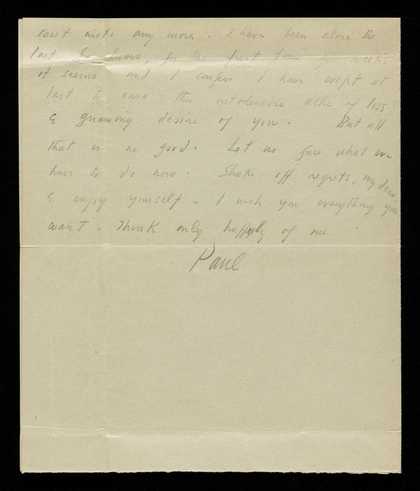 can't write any more. I have been alone the
last 2 hours, for the first time
of seems and I confess I have wept at
last to ease the ache of loss
& gnawing desire of you. But all
that is no good. Let us face what we
have to do now. Shake off regrets, my dear
& enjoy yourself. I wish you everything you
want. Think only happily of me.
Paul